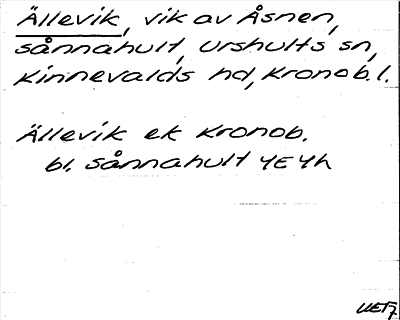 Ällevik, vik av Åsnen,
Sånnahult, Urshults sn,
Kinnevalds hd, Kronob. l.
Ällevik ek Kronob.
bl. Sånnahult 4E4h